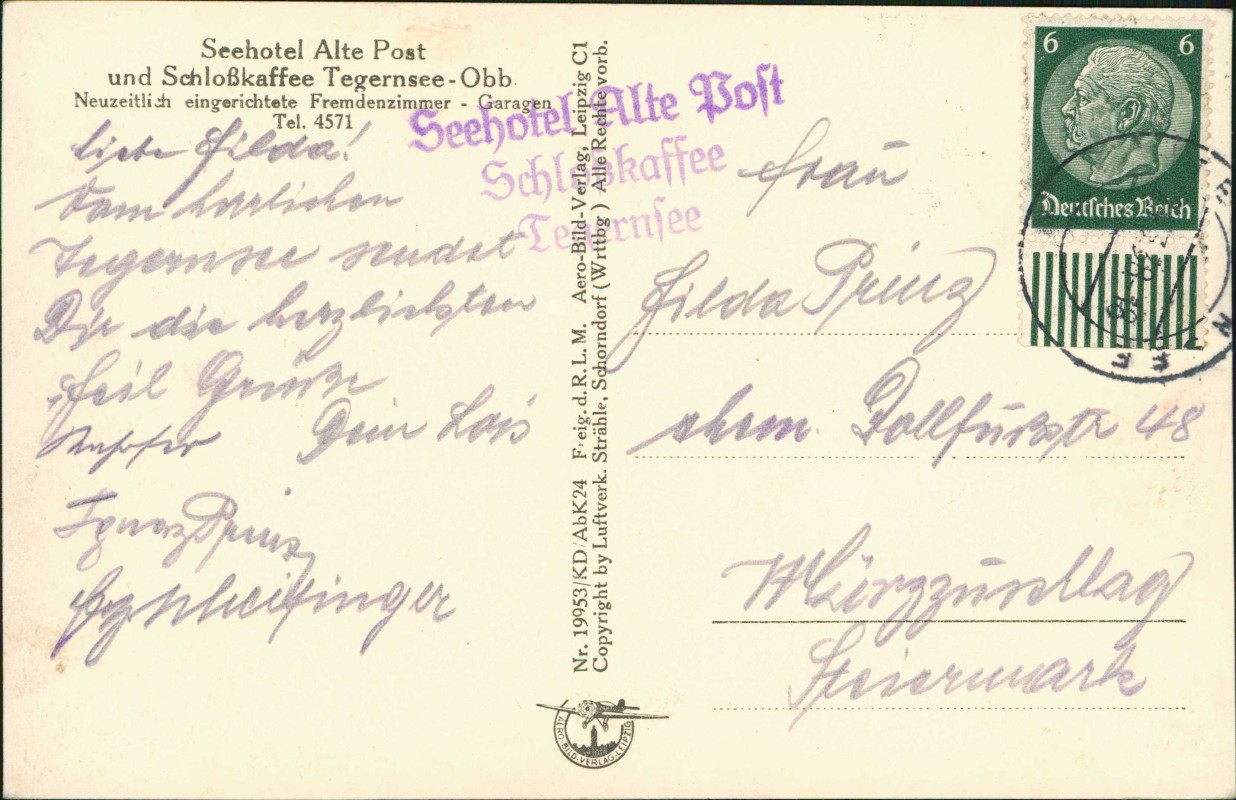 Seehotel Alte Post
und Schloßkaffee Tegernsee-Obb.
Neuzeitlich eingerichtete Fremdenzimmer - Garagen
Tel. 4571
Liebe Hilda!
Vom herrlichen
Tegernsee sendet
Dir die herzlichsten
Heil Grüße
Dein Lois
Ignaz Prinz
Nr. 19953/KD/AbK24 Freig. d. R. L. M. Aero-Bild-Verlag, Leipzig C1
Copyright by Luftverk. Strähle, Schorndorf (Wrttbg) Alle Rechte vorb.
Seehotel Alte Post
Schloßkaffee
Tegernsee
6 6
Deutsches Reich
Frau
Hilda Prinz
ehem. Dollfußstr 48
Mürzzuschlag
Steiermark
AERO-BILD-VERLAG-LEIPZIG